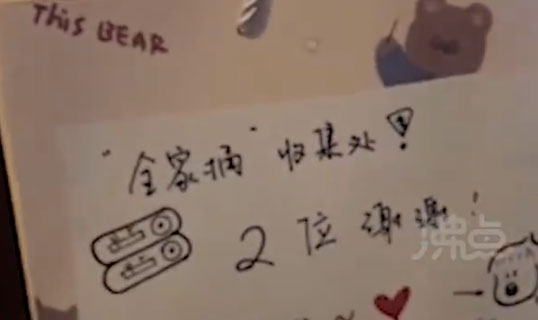 This BEAR
"全家桶"收集处!
2位谢谢!
沸点